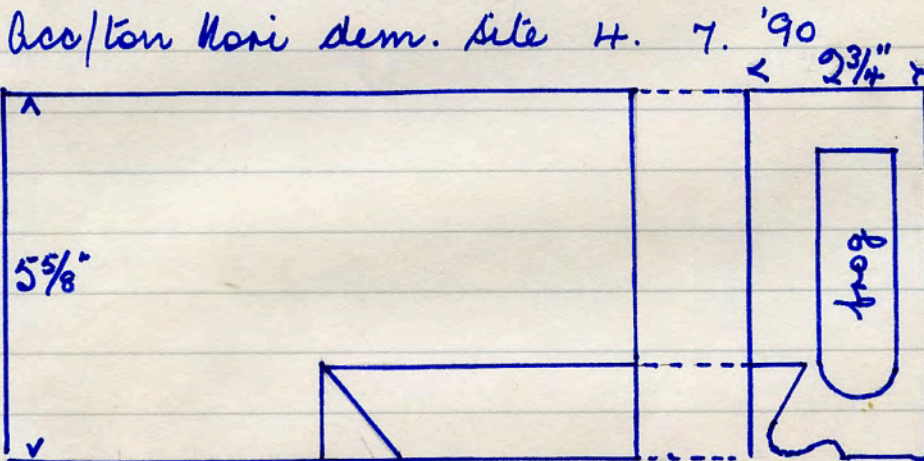 Acc/ton Nori dem. site 4. 7. '90
2¾"
5⅝"
frog